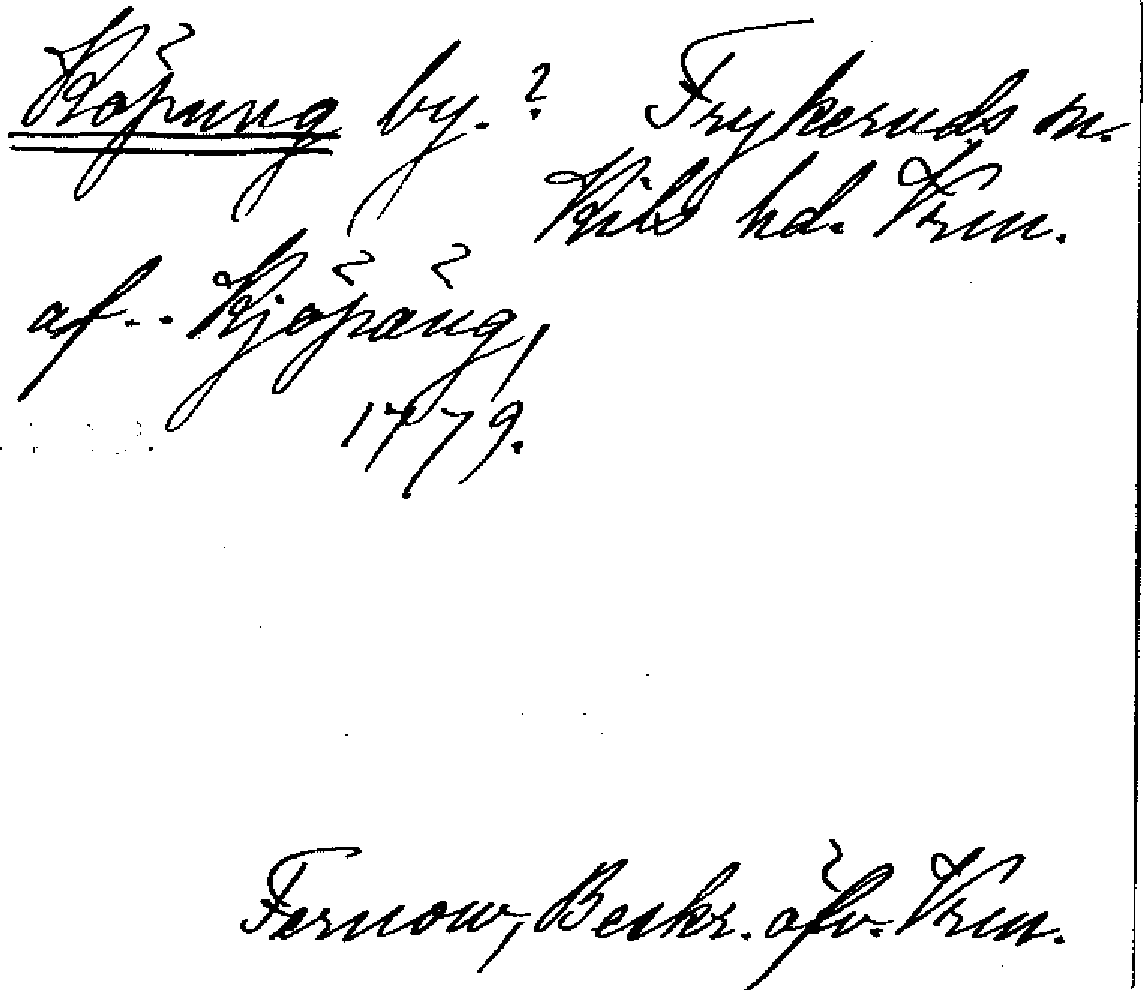 Köpung by.? Frykeruds sn.
Kils hd. Vrm.
af.. Kjöpäng,
1779.
Fernow, Beskr. öfv. Vrm.